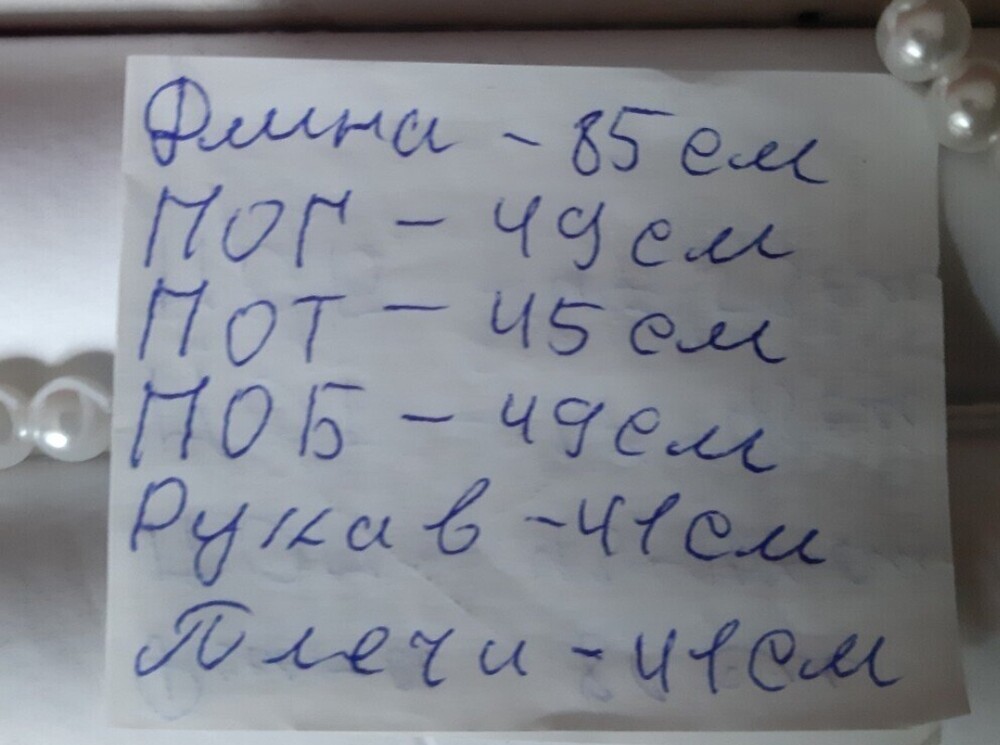 Длина - 85 см
ПОГ - 49 см
ПОТ - 45 см
ПОБ - 49 см
Рукав - 41 см
Плечи - 41 см